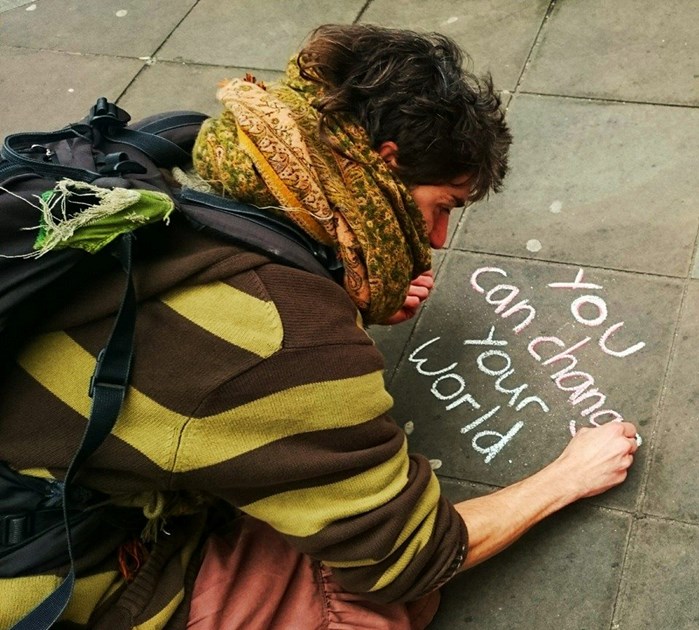 You
can chang
your
world